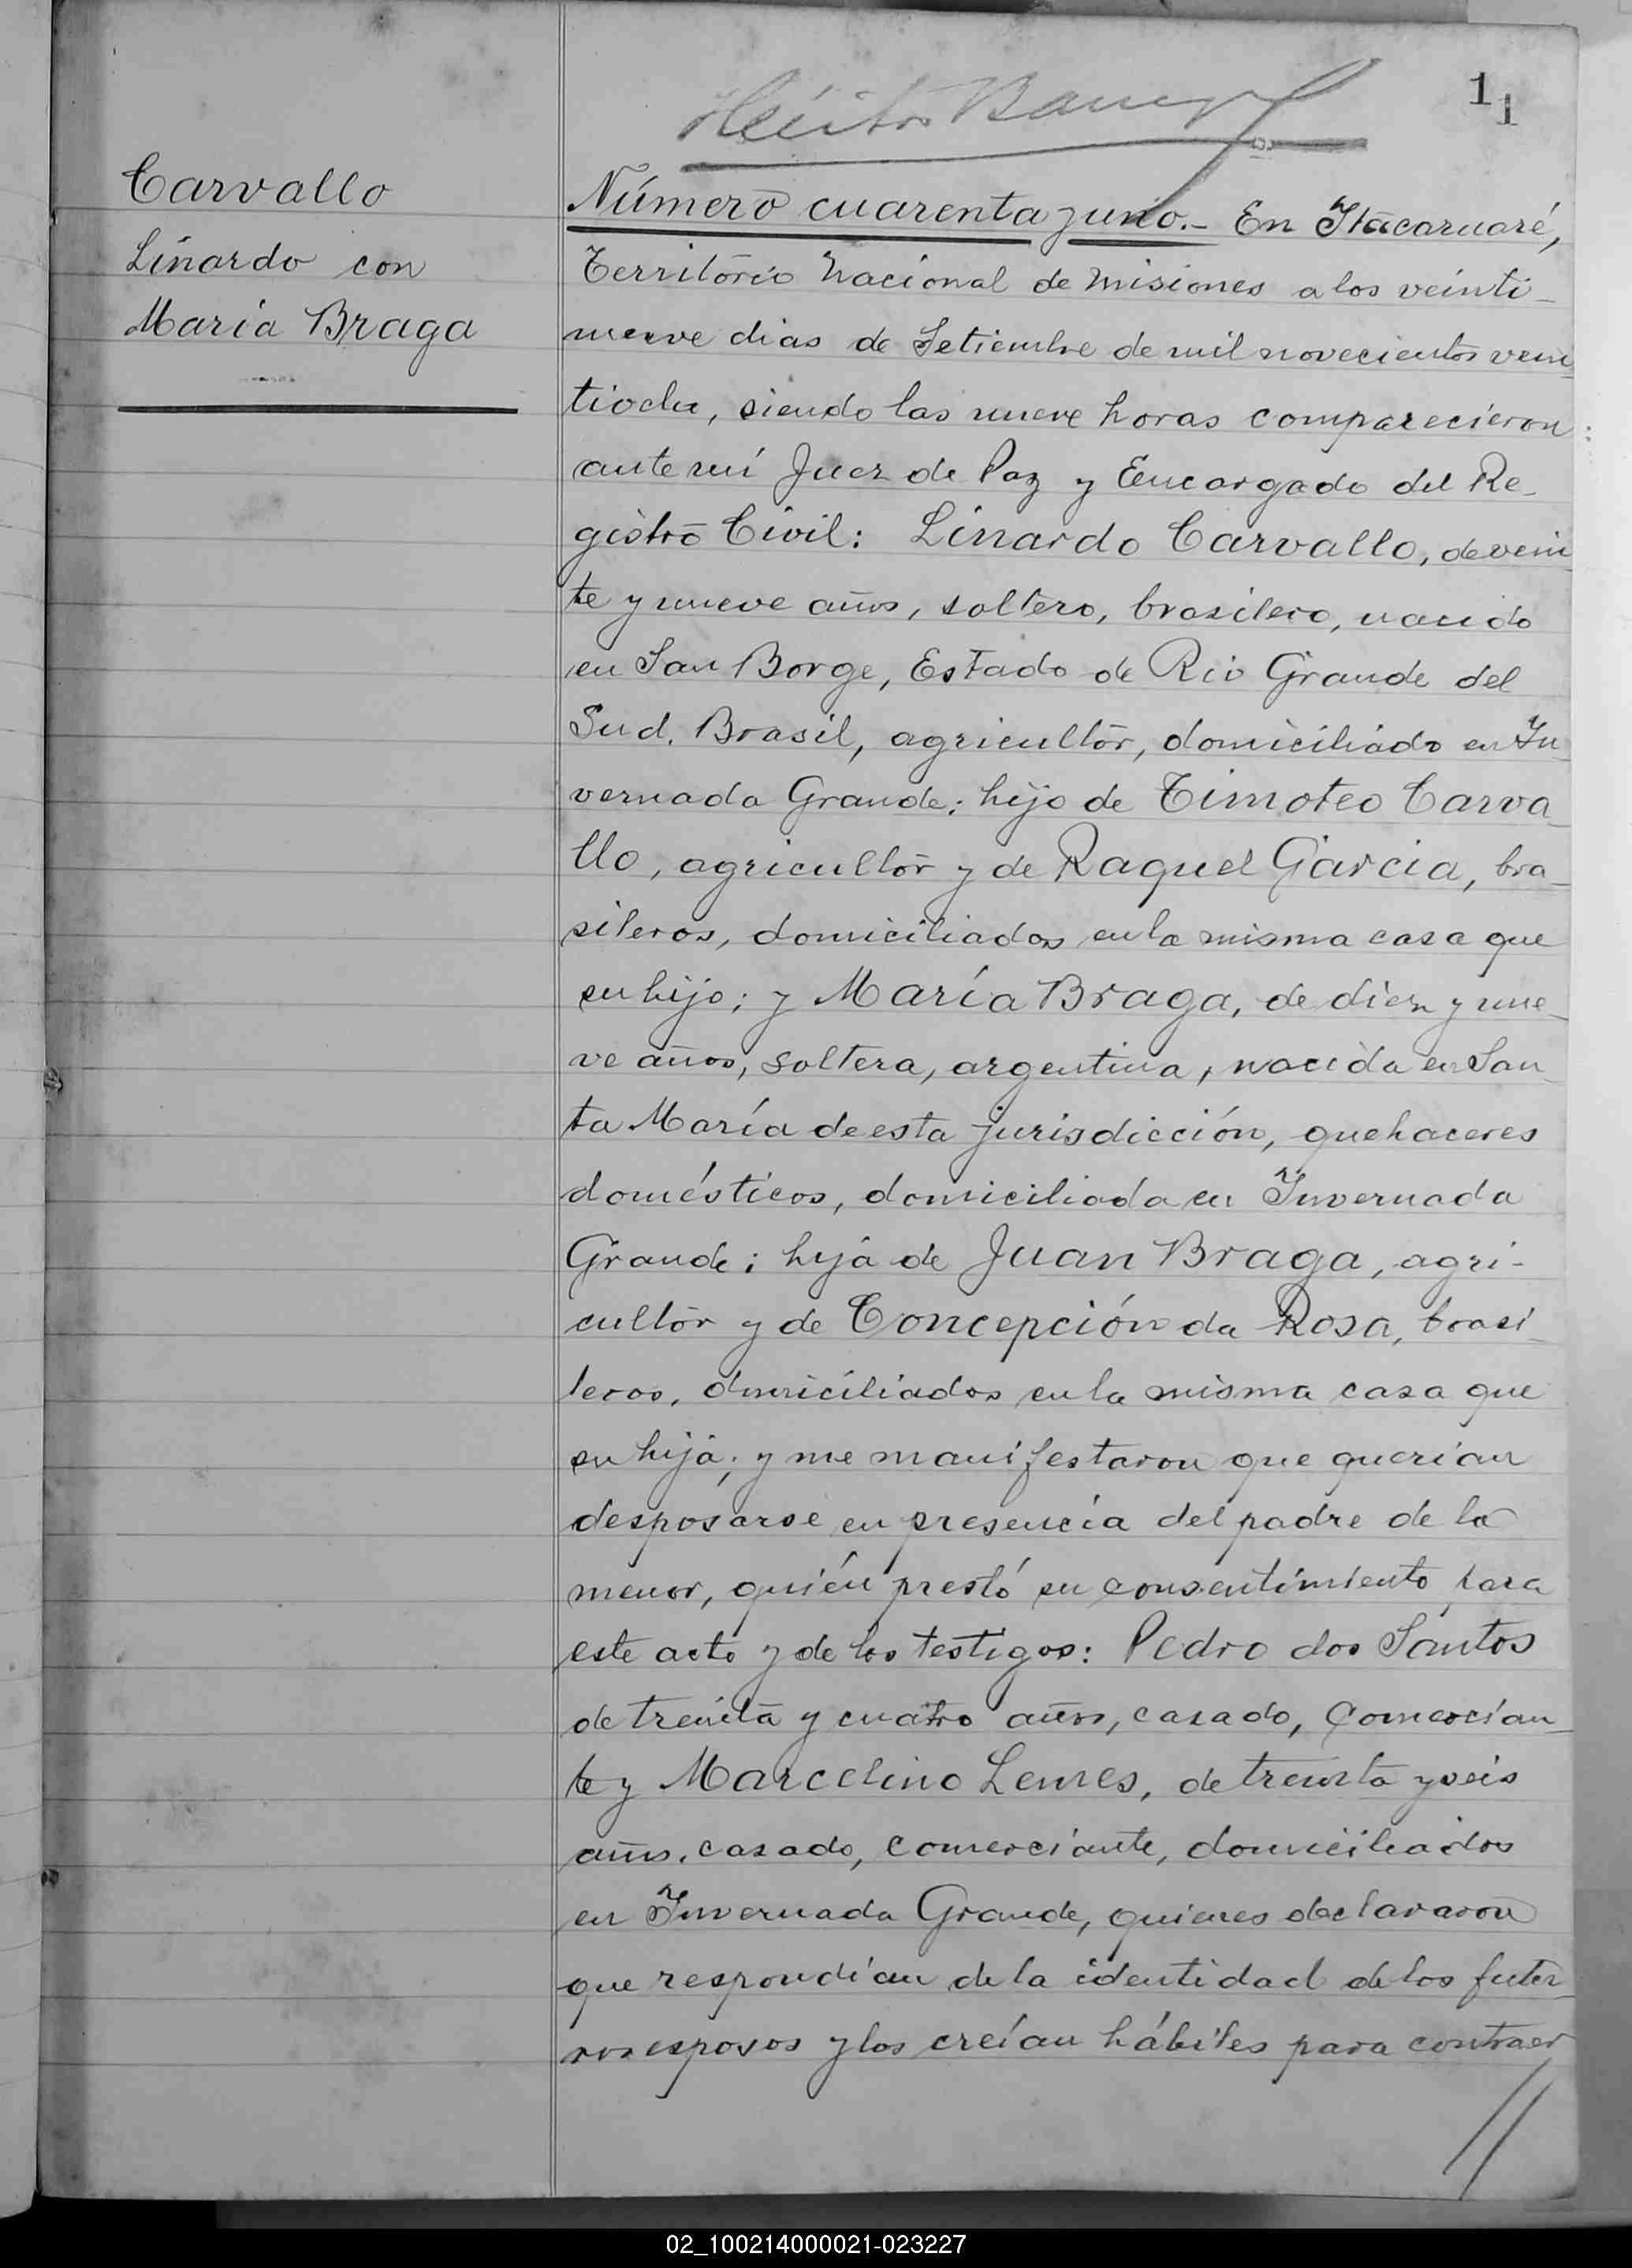 11
Carvallo
Linardo con
María Braga
Número cuarenta y uno.- En Itacaruaré,
Territorio Nacional de Misiones a los veinti-
nueve dias de Setiembre de mil novecientos vein
tiocho, siendo las nueve horas comparecieron:
ante mí Juez de Paz y Encargado del Re-
gistro Civil: Linardo Carvallo, de vein
te y nueve años, soltero, brasilero, nacido
en San Borge, Estado de Rio Grande del
Sud. Brasil, agricultor, domiciliado en In-
vernada Grande; hijo de Timoteo Carva-
llo, agricultor y de Raquel Garcia, bra-
sileros, domiciliados en la misma casa que
su hijo; y María Braga, de diez y nue-
ve años, soltera, argentina, nacida en San-
ta María de esta jurisdicción, quehaceres
domésticos, domiciliada en Invernada
Grande; hija de Juan Braga, agri-
cultor y de Concepción da Rosa, brasi-
leros, domiciliados en la misma casa que
su hija; y me manifestaron que querían
desposarse en presencia del padre de la
menor, quién prestó su consentimiento para
este acto y de los testigos: Pedro dos Santos
de treinta y cuatro años, casado, comercian-
te y Marcelino Lemes, de treinta y seis
años, casado, comerciante, domiciliados
en Invernada Grande, quienes declararon
que respondían de la identidad de los futu-
ros esposos y los creían hábiles para contraer
//
02_100214000021-023227